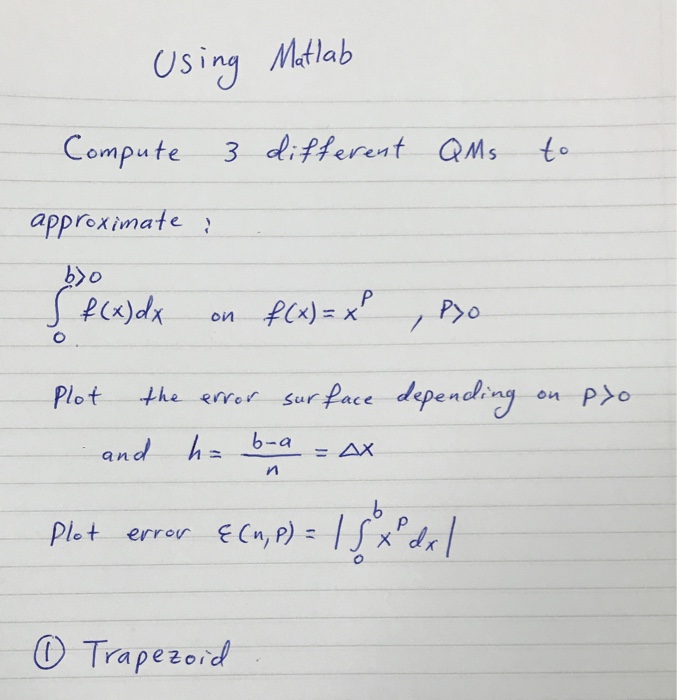 Using Matlab
Compute 3 different QMs to
approximate :
∫₀^{b>0} f(x)dx on f(x) = x^p , P>0
Plot the error surface depending on p>0
and h = (b-a)/n = Δx
Plot error ℇ(n,p) = |∫₀^b x^p dx|
① Trapezoid